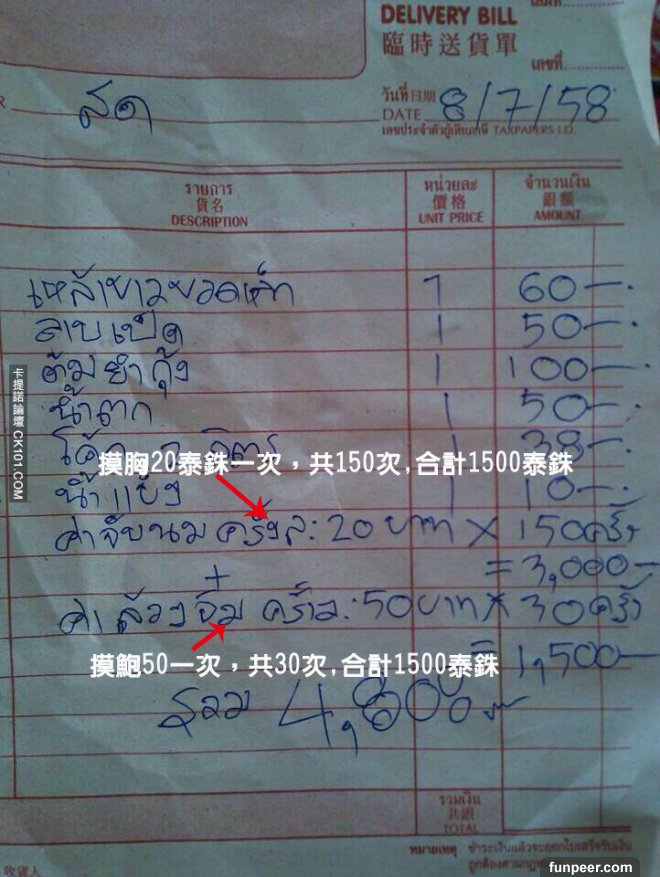 DELIVERY BILL
臨時送貨單
เลขที่
วันที่ 日期
DATE 8/7/58
เลขประจำตัวผู้เสียภาษี TAXPAPERS I.D.
สด
รายการ หน่วยละ จำนวนเงิน
貨名 價格 銀額
DESCRIPTION UNIT PRICE AMOUNT
เหล้าขาว 1 60-.
ลาบเป็ด 1 50-.
ต้มยำกุ้ง 1 100-.
น้ำตก 1 50-.
โค้ก ลิตร 1 38-.
摸胸20泰銖一次，共150次,合計1500泰銖
น้ำแข็ง 1 10-.
ค่าจับนม ครั้งล: 20 บาท X 150 ครั้ง
= 3,000-
+
ค่าล้วงจิ๋ม ครั้งล: 50 บาท X 30 ครั้ง
摸鮑50一次，共30次,合計1500泰銖
= 1,500-
รวม 4,800
รวมเงิน
共銀
TOTAL
หมายเหตุ ชำระเงินแล้วจะออกใบเสร็จรับเงิน
收貨人
卡提諾論壇 CK101.COM
funpeer.com